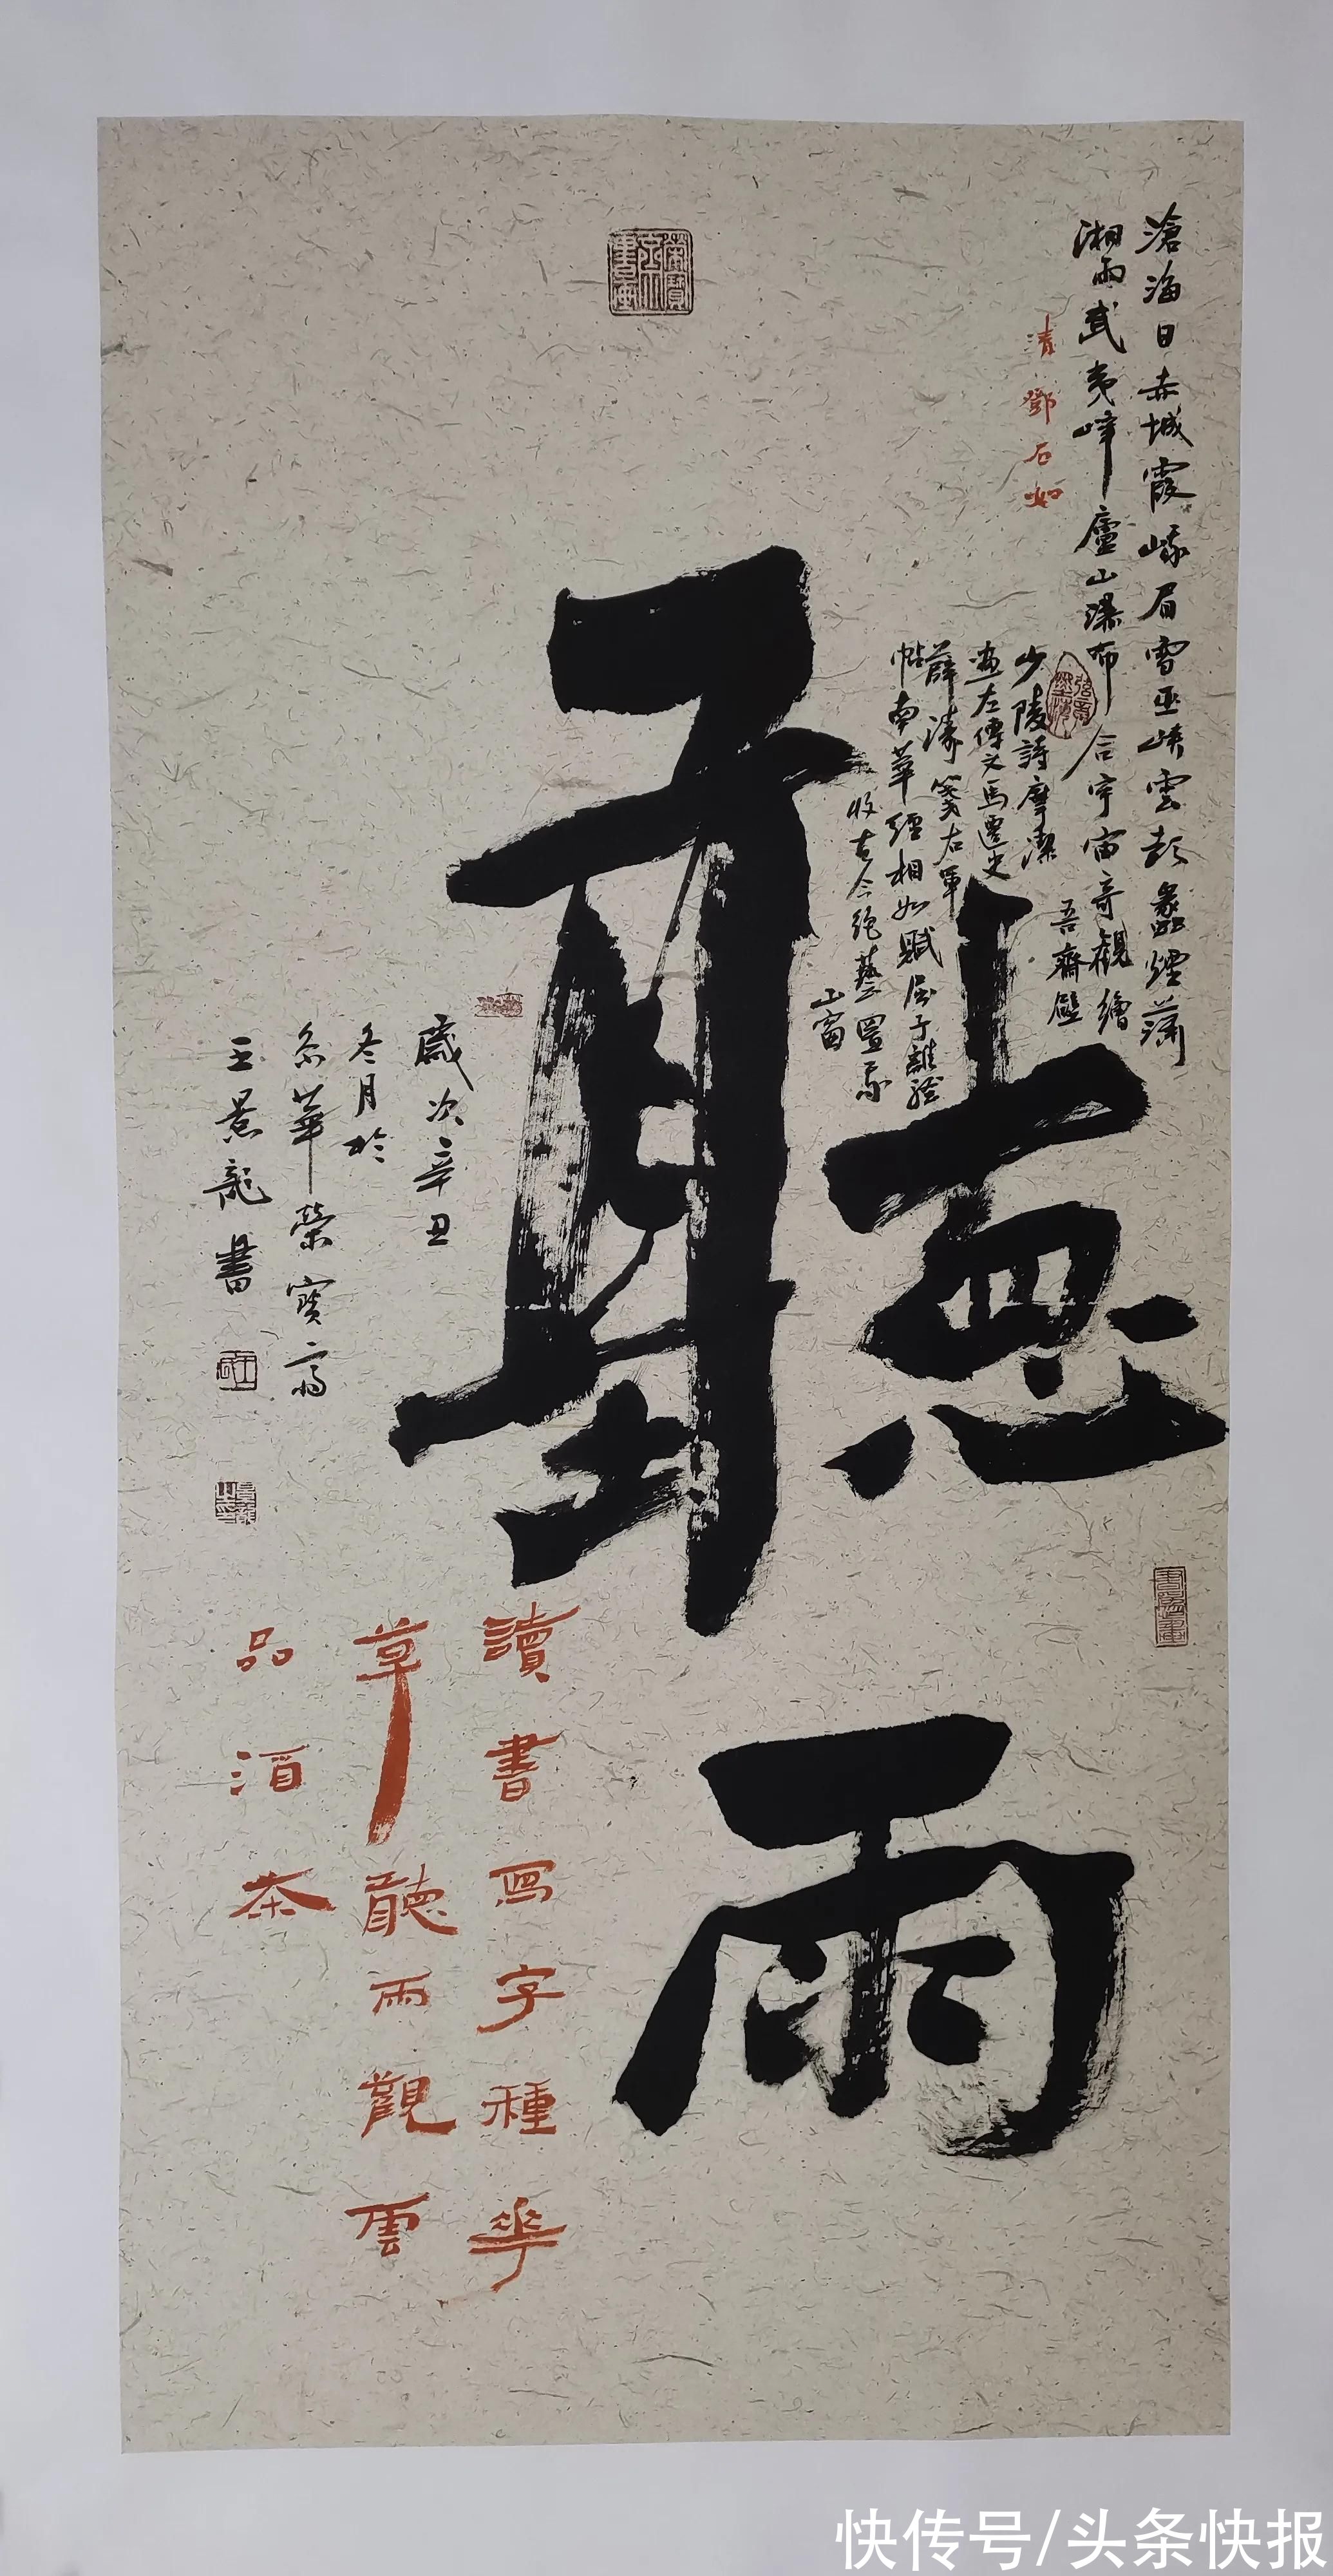 聽雨
滄海日赤城霞峨眉雪巫峽雲彭蠡煙瀟
湘雨武夷峰廬山瀑布合宇宙奇觀繪
吾齋壁
清 鄧石如
少陵詩摩潔
畫左傳文馬遷史
薛濤箋右軍
帖南華經相如賦屈子離經
收古今絕藝置我
山窗
歲次辛丑
冬月於
京華榮寶齋
王景龍書
讀書寫字種花
草聽雨觀雲
品酒茶
快传号/头条快报